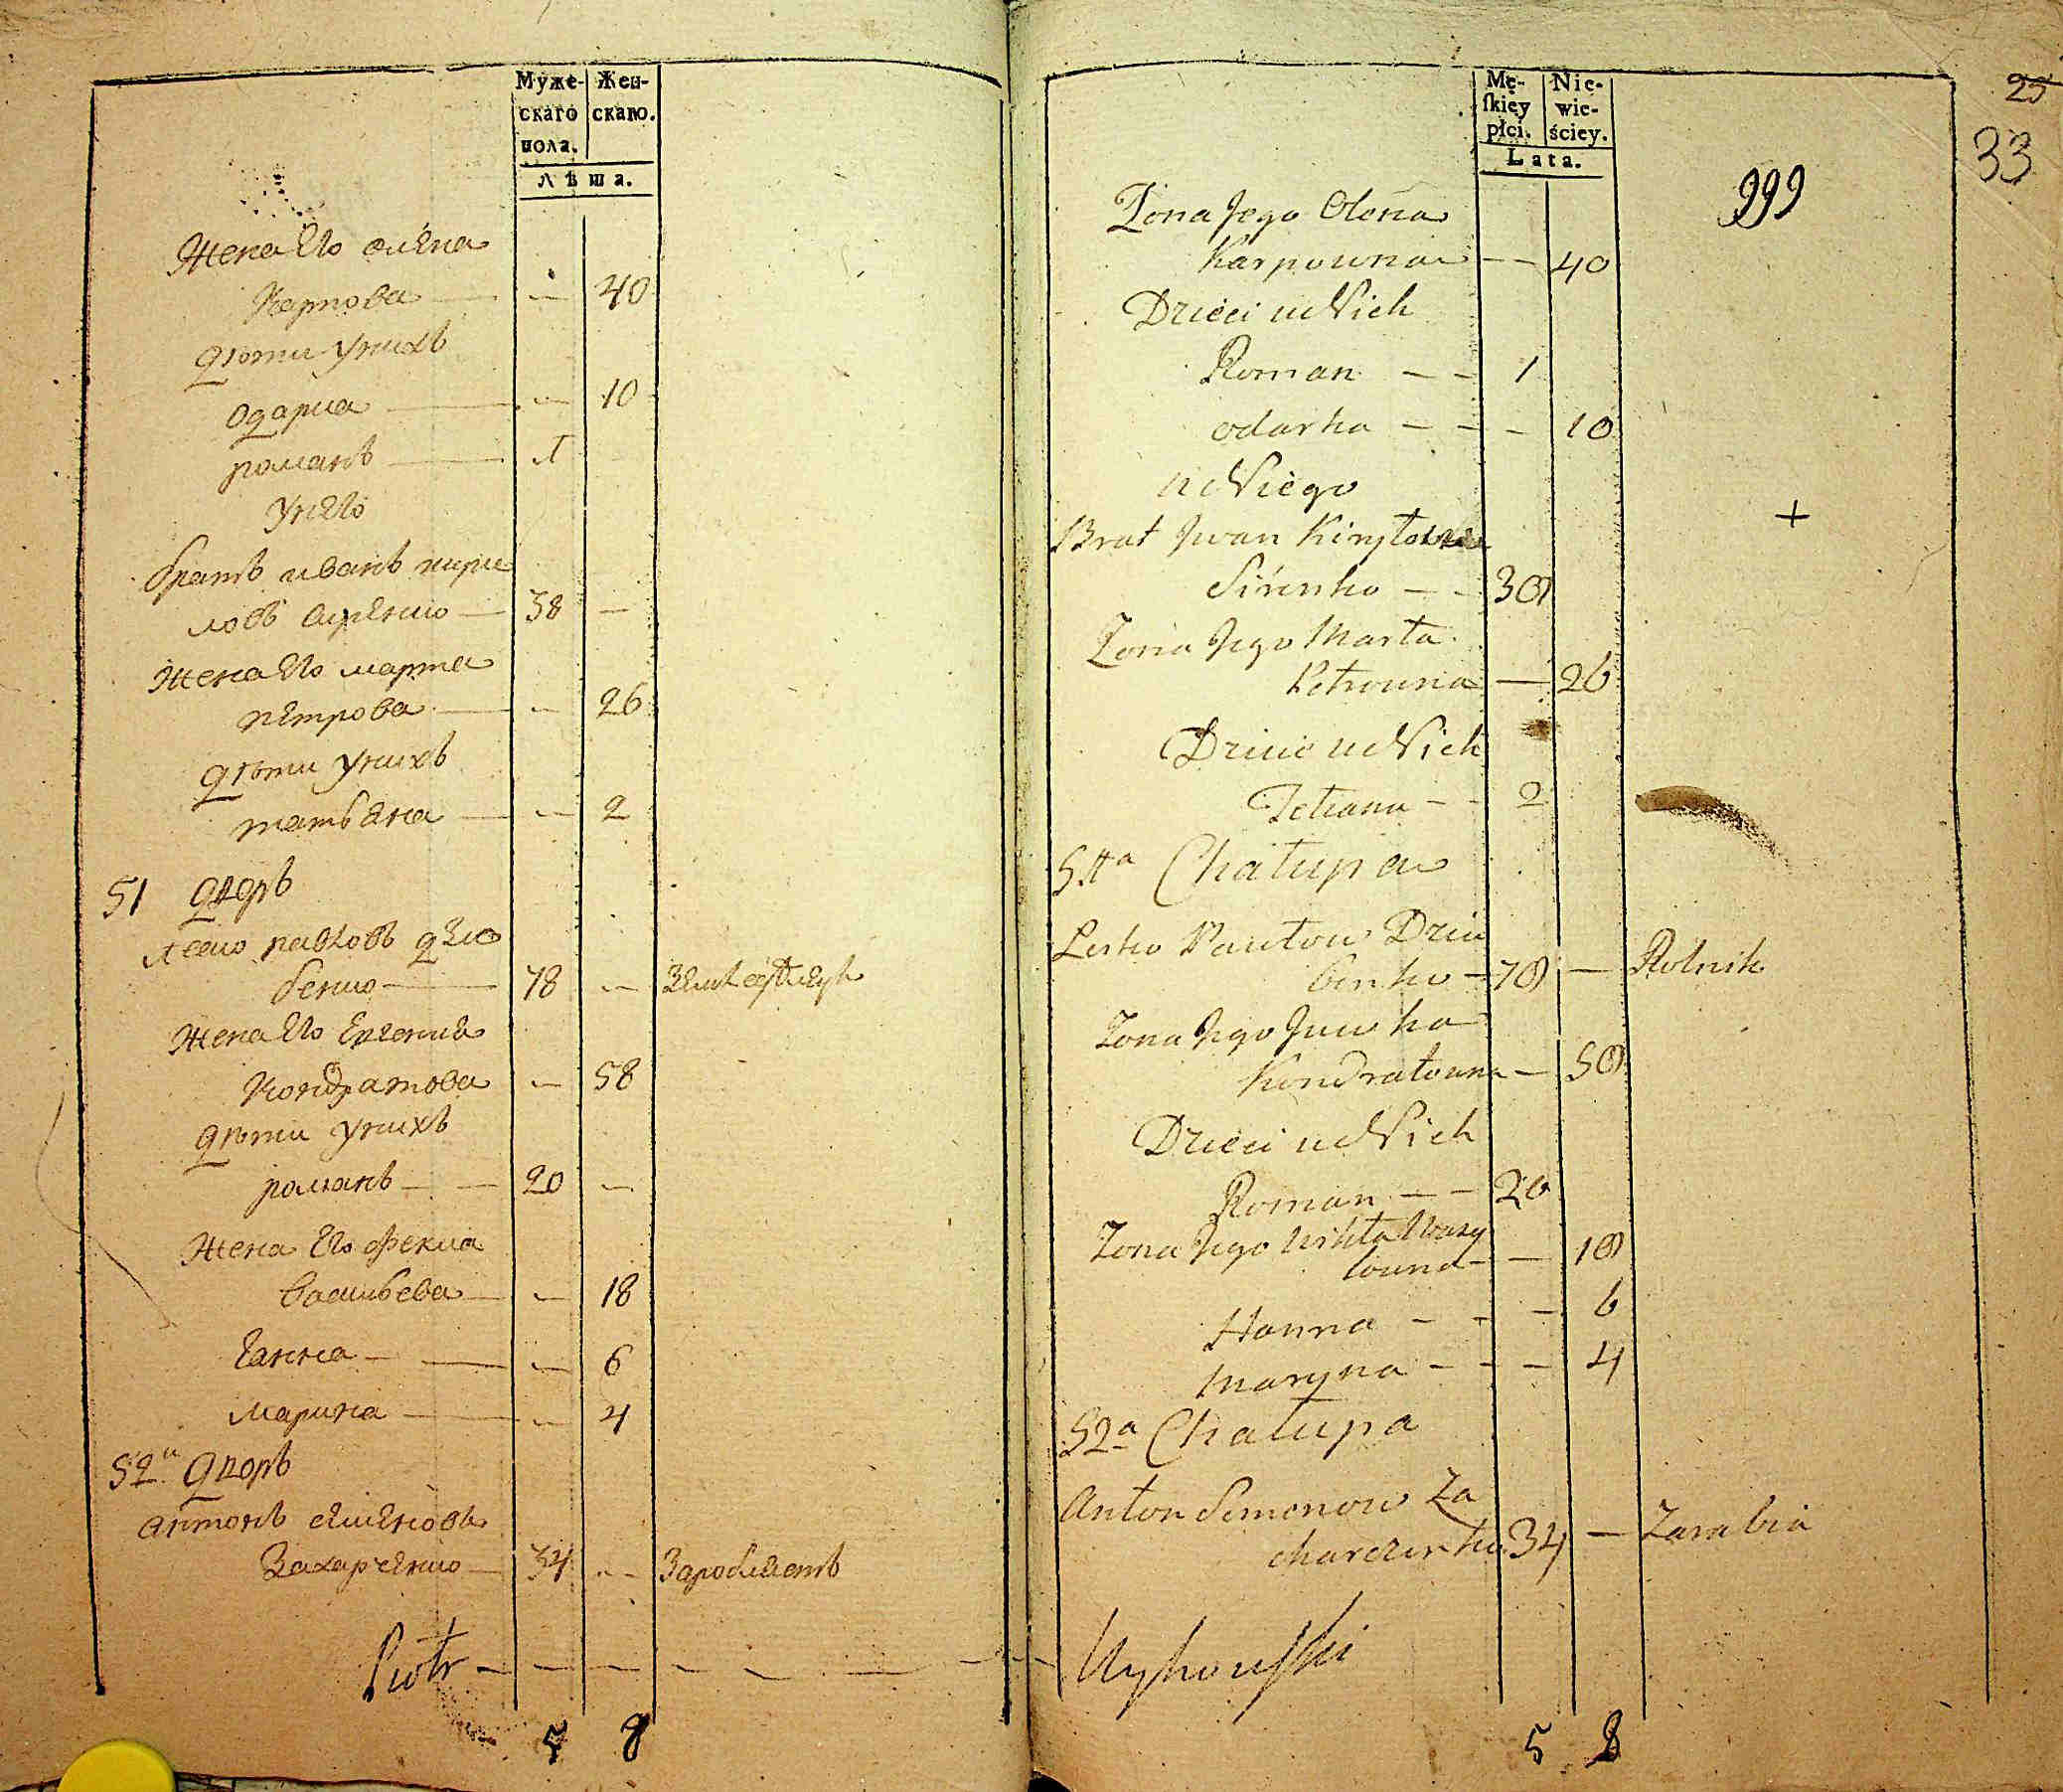 Муже- Жен-
скаго скаго.
пола.
лѣта.
Жена Его олѣна
Карпова — — 40
Дѣти Унихъ
Одарка — — 10
романъ — 1
Унего
братъ иванъ кири
ловъ — 38 —
Жена Его марта
петрова — — 26
Дѣти Унихъ
татьяна — — 2
51 Дворъ
леско павловъ дзю
бенко — 78 —
Жена Его Евгения
Кондратова — 58
Дѣти Унихъ
романъ — — 20 —
Жена Его Фекла
Васильева — — 18
Ганна — — — 6
Марина — — 4
52й Дворъ
антонъ семеновъ
Захарченко — 34 — Заробляетъ
Piotr — — — — — — —
5 8
Mę- Nie-
ſkiey wie-
płci. ściey.
Lata.
25
33
999
Zona Jego Olena
Karpowna — — 40
Dzieci u Nich
Roman — — 1
Odarka — — — 10
u Niego
+
Brat Jwan Kiryłow
— — 38
Zona Jego Marta
Petrowna — 26
Dzieci u Nich
Tetiana — — 2
51a Chałupa
Lesko Pawłow Dziu
benko — 78 — Rolnik
Zona Jego
Kondratowna — 58
Dzieci u Nich
Roman — — 20
Zona Jego Wasy
lowna — — 18
Hanna — — — 6
Maryna — — — 4
52a Chałupa
Anton Semenow Za
charczenko 34 — Zarabia
5 8